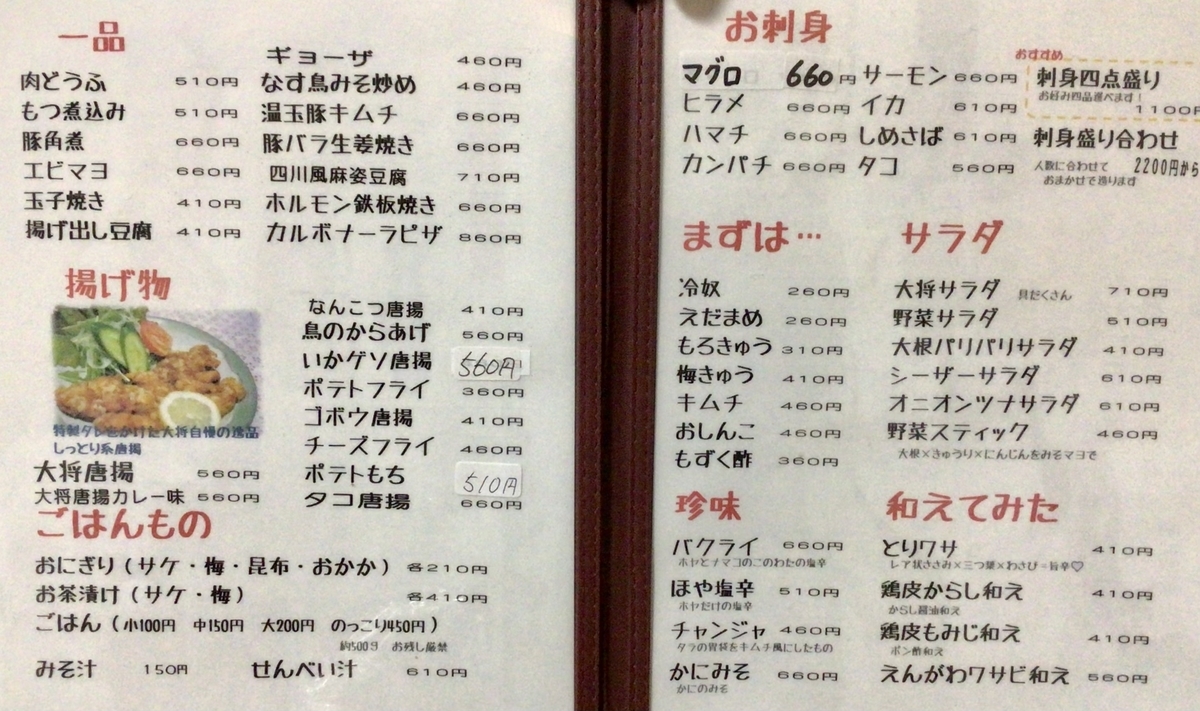 一品
ギョーザ 460円
肉どうふ 510円 なす鳥みそ炒め 460円
もつ煮込み 510円 温玉豚キムチ 660円
豚角煮 660円 豚バラ生姜焼き 660円
エビマヨ 660円 四川風麻姿豆腐 710円
玉子焼き 410円 ホルモン鉄板焼き 660円
揚げ出し豆腐 410円 カルボナーラピザ 860円
揚げ物
特製タレをかけた大将自慢の逸品
しっとり系唐揚
大将唐揚 560円
大将唐揚カレー味 560円
なんこつ唐揚 410円
鳥のからあげ 560円
いかゲソ唐揚 560円
ポテトフライ 360円
ゴボウ唐揚 410円
チーズフライ 460円
ポテトもち 510円
タコ唐揚 660円
ごはんもの
おにぎり(サケ・梅・昆布・おかか) 各210円
お茶漬け(サケ・梅) 各410円
ごはん(小100円 中150円 大200円 のっこり450円)
約500g お残し厳禁
みそ汁 150円 せんべい汁 610円
お刺身
マグロ 660円 サーモン 660円
ヒラメ 660円 イカ 610円
ハマチ 660円 しめさば 610円
カンパチ 660円 タコ 560円
おすすめ
刺身四点盛り
お好み四品選べます!
1100円
刺身盛り合わせ
人数に合わせて 2200円から
おまかせで造ります
まずは…
冷奴 260円
えだまめ 260円
もろきゅう 310円
梅きゅう 410円
キムチ 460円
おしんこ 460円
もずく酢 360円
サラダ
大将サラダ 具だくさん 710円
野菜サラダ 510円
大根パリパリサラダ 410円
シーザーサラダ 610円
オニオンツナサラダ 610円
野菜スティック 460円
大根×きゅうり×にんじんをみそマヨで
珍味
バクライ 660円
ホヤとナマコのこのわたの塩辛
ほや塩辛 510円
ホヤだけの塩辛
チャンジャ 460円
タラの胃袋をキムチ風にしたもの
かにみそ 660円
かにのみそ
和えてみた
とりワサ 410円
レア状ささみ×三つ葉×わさび=旨辛♡
鶏皮からし和え 410円
からし醤油和え
鶏皮もみじ和え 410円
ポン酢和え
えんがわワサビ和え 560円